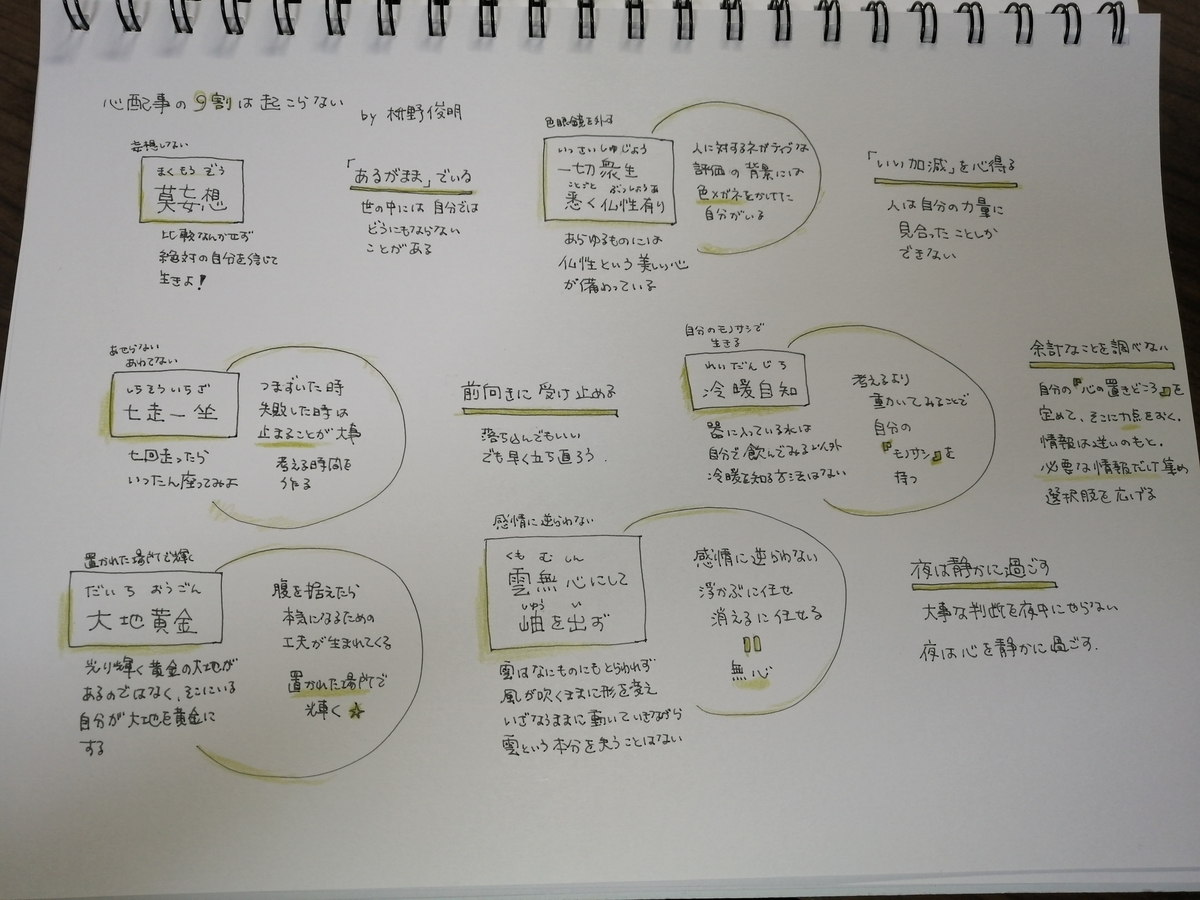 心配事の9割は起こらない
by 枡野俊明
妄想しない
まくもうぞう
莫妄想
比較なんかせず
絶対の自分を信じて
生きよ!
「あるがまま」でいる
世の中には自分では
どうにもならない
ことがある
色眼鏡を外す
いっさいしゅじょう
一切衆生
ことごと ぶっしょうあ
悉く仏性有り
あらゆるものには
仏性という美しい心
が備わっている
人に対するネガティブな
評価の背景には
色メガネをかけてた
自分がいる
「いい加減」を心得る
人は自分の力量に
見合ったことしか
できない
あせらない
あわてない
しちそういちざ
七走一坐
七回走ったら
いったん座ってみよ
つまずいた時
失敗した時は
止まることが大事
考える時間を
作る
前向きに受け止める
落ち込んでもいい
でも早く立ち直ろう.
自分のモノサシで
生きる
れいだんじち
冷暖自知
器に入っている水は
自分で飲んでみる以外
冷暖を知る方法はない
考えるより
動いてみることで
自分の
『モノサシ』を
持つ
余計なことを調べない
自分の『心の置きどころ』を
定めて、そこに力点をおく.
情報は迷いのもと.
必要な情報だけ集め
選択肢を広げる
置かれた場所で輝く
だいち おうごん
大地黄金
光り輝く黄金の大地が
あるのではなく、そこにいる
自分が大地を黄金に
する
腹を据えたら
本気になるための
工夫が生まれてくる
置かれた場所で
輝く☆
感情に逆らわない
くも むしん
雲無心にして
しゅう い
岫を出ず
雲はなにものにもとらわれず
風が吹くままに形を変え
いざなうままに動いていきながら
雲という本分を失うことはない
感情に逆らわない
浮かぶに任せ
消えるに任せる
||
無心
夜は静かに過ごす
大事な判断を夜中にやらない
夜は心を静かに過ごす.